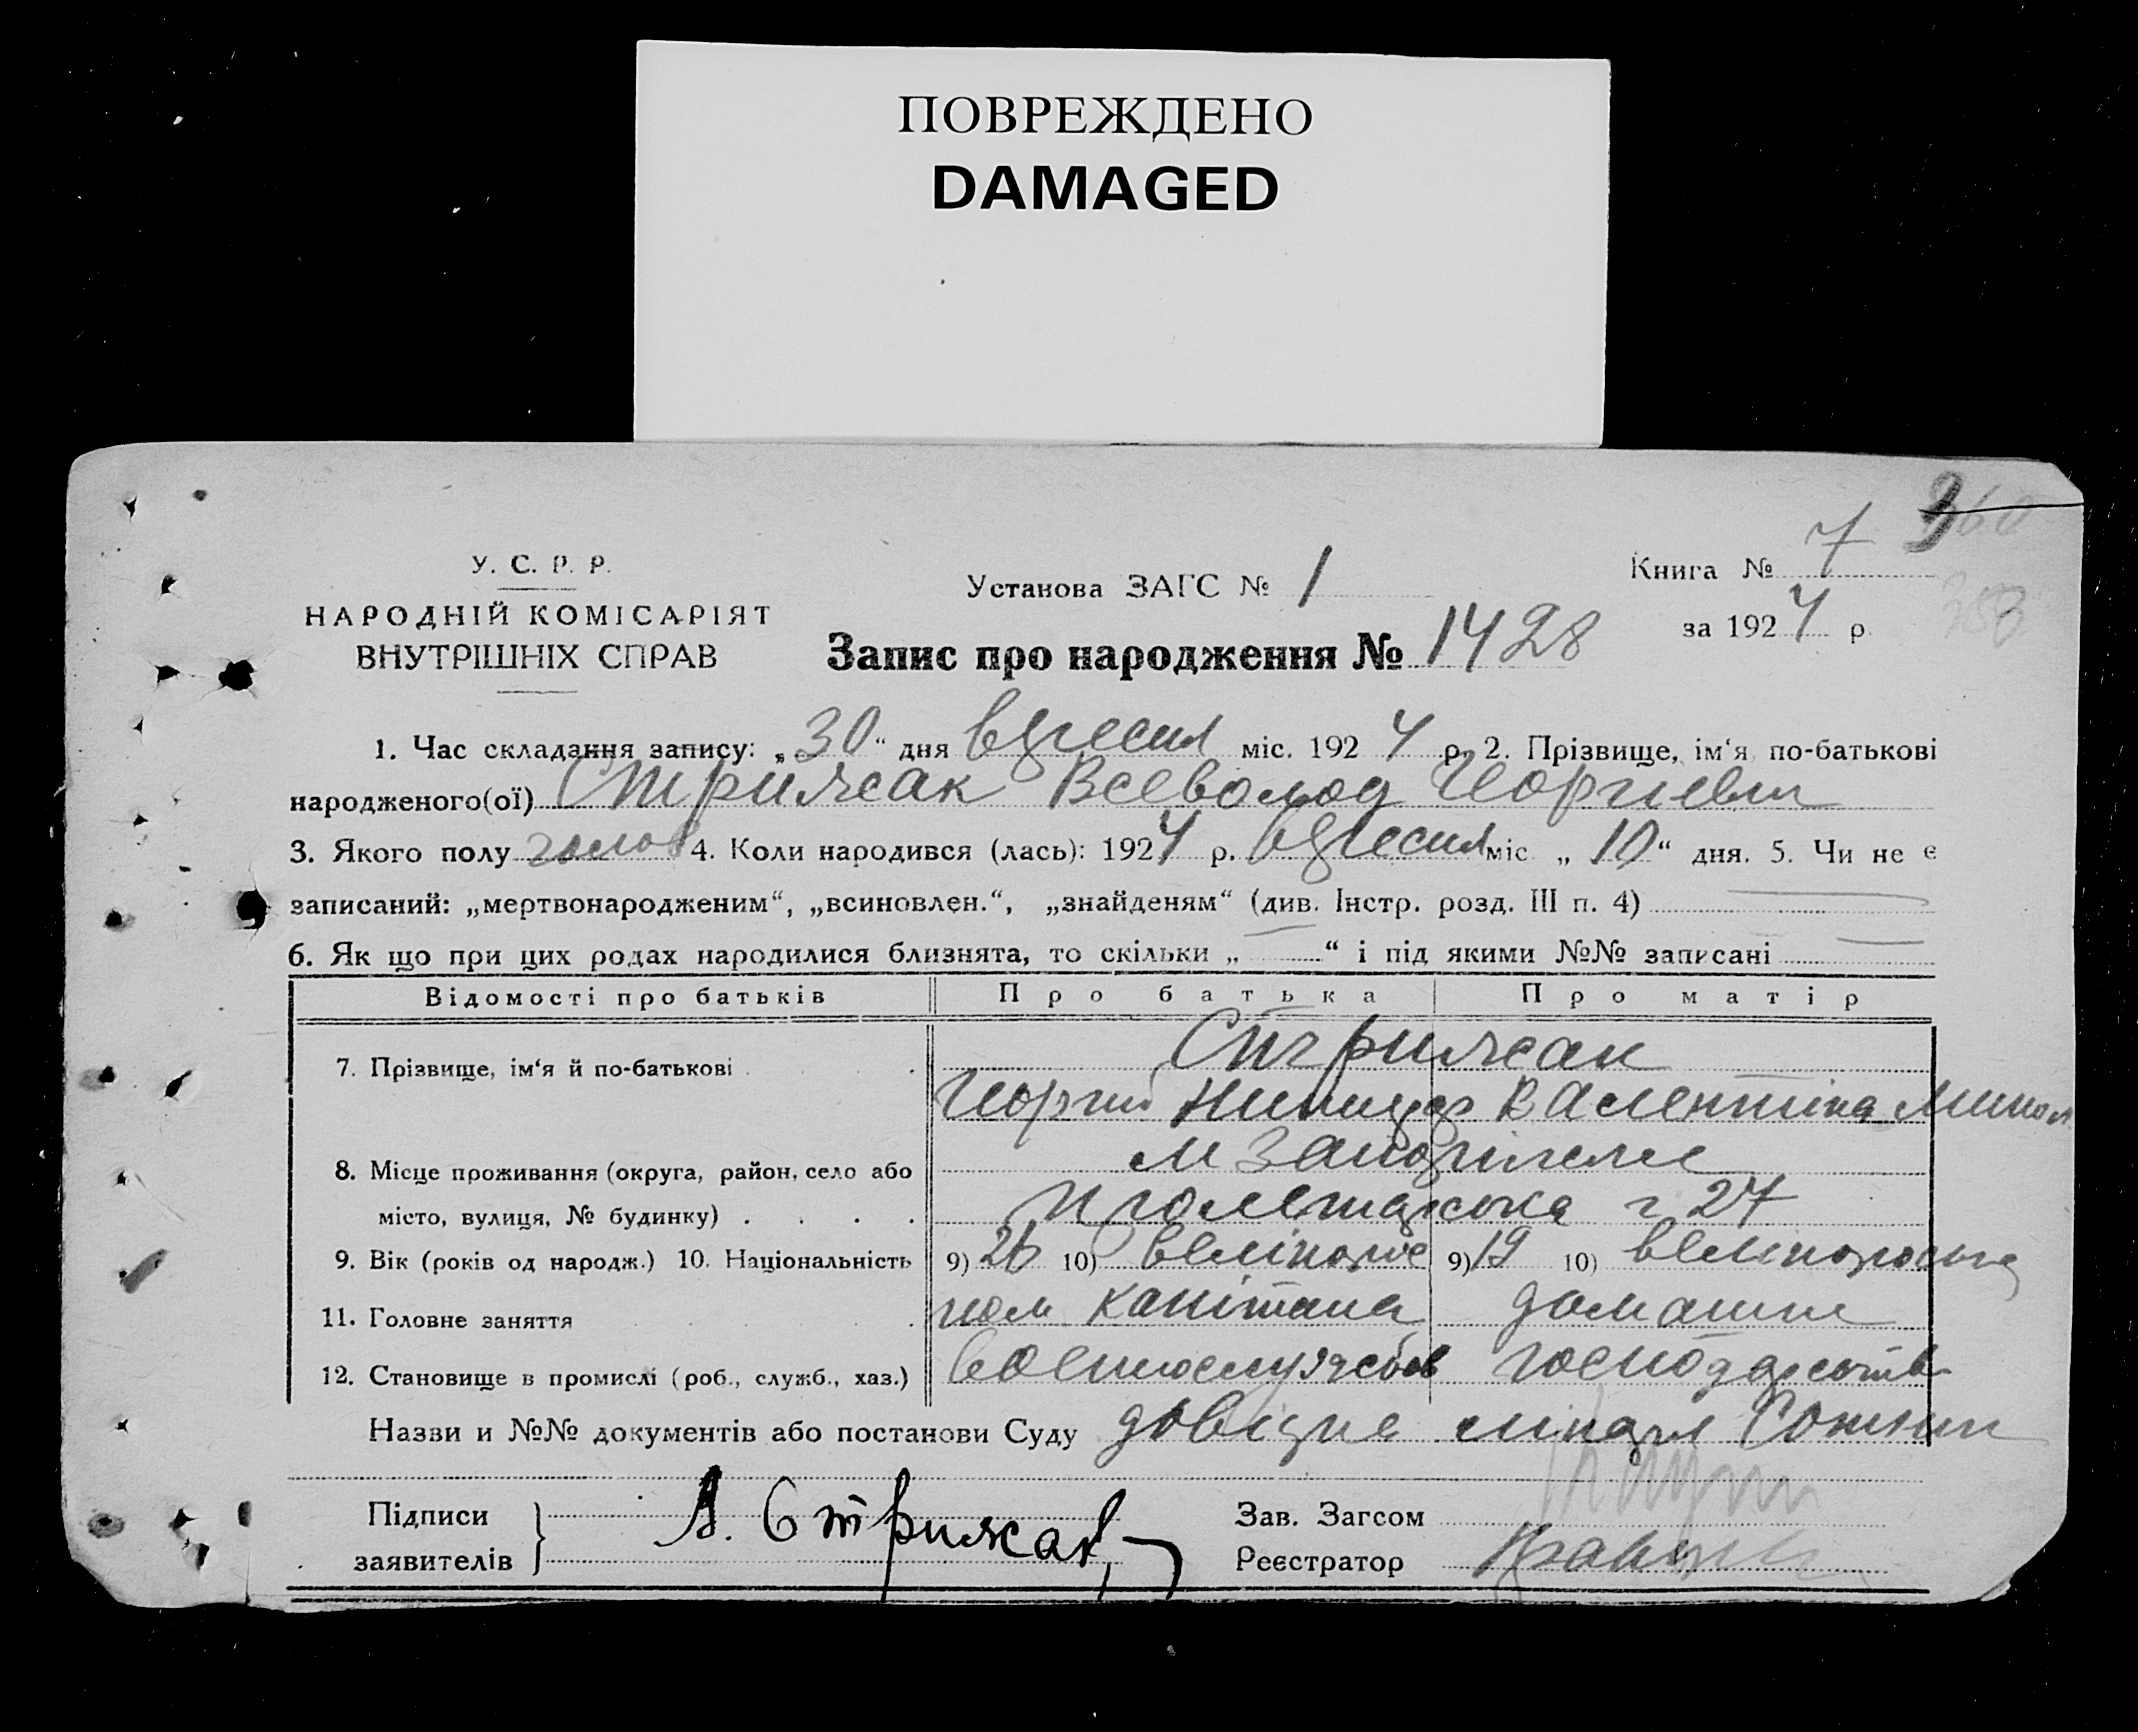 ПОВРЕЖДЕНО
DAMAGED
360
353
У. С. Р. Р.
НАРОДНІЙ КОМІСАРІЯТ
ВНУТРІШНІХ СПРАВ
Установа ЗАГС № 1
Книга № 7
за 1924 р.
Запис про народження № 1428
1. Час складання запису: „30“ дня вересня міс. 1924 р. 2. Прізвище, ім‘я, по-батькові
народженого(ої) Стрижак Всеволод Георгиевич
3. Якого полу чолов 4. Коли народився (лась): 1924 р. вересня міс. „10“ дня. 5. Чи не є
записаний: „мертвонародженим“, „всиновлен.“, „знайденям“ (див. Інстр. розд. III п. 4)
6. Як що при цих родах народилися близнята, то скільки „ “ і під якими №№ записані
Відомості про батьків Про батька Про матір
7. Прізвище, ім‘я й по-батькові Стрижак
Георгий Валентіна Микол
8. Місце проживання (округа, район, село або м Запоріжжє
місто, вулиця, № будинку) Пролетарська 27
9. Вік (років од народж.) 10. Національність 9) 26 10) 9) 19 10) великоруська
11. Головне заняття пом капітана домашнє
12. Становище в промислі (роб., служб., хаз.) господарств
Назви и №№ документів або постанови Суду
Підписи
заявителів А. Стрижак
Зав. Загсом
Реєстратор